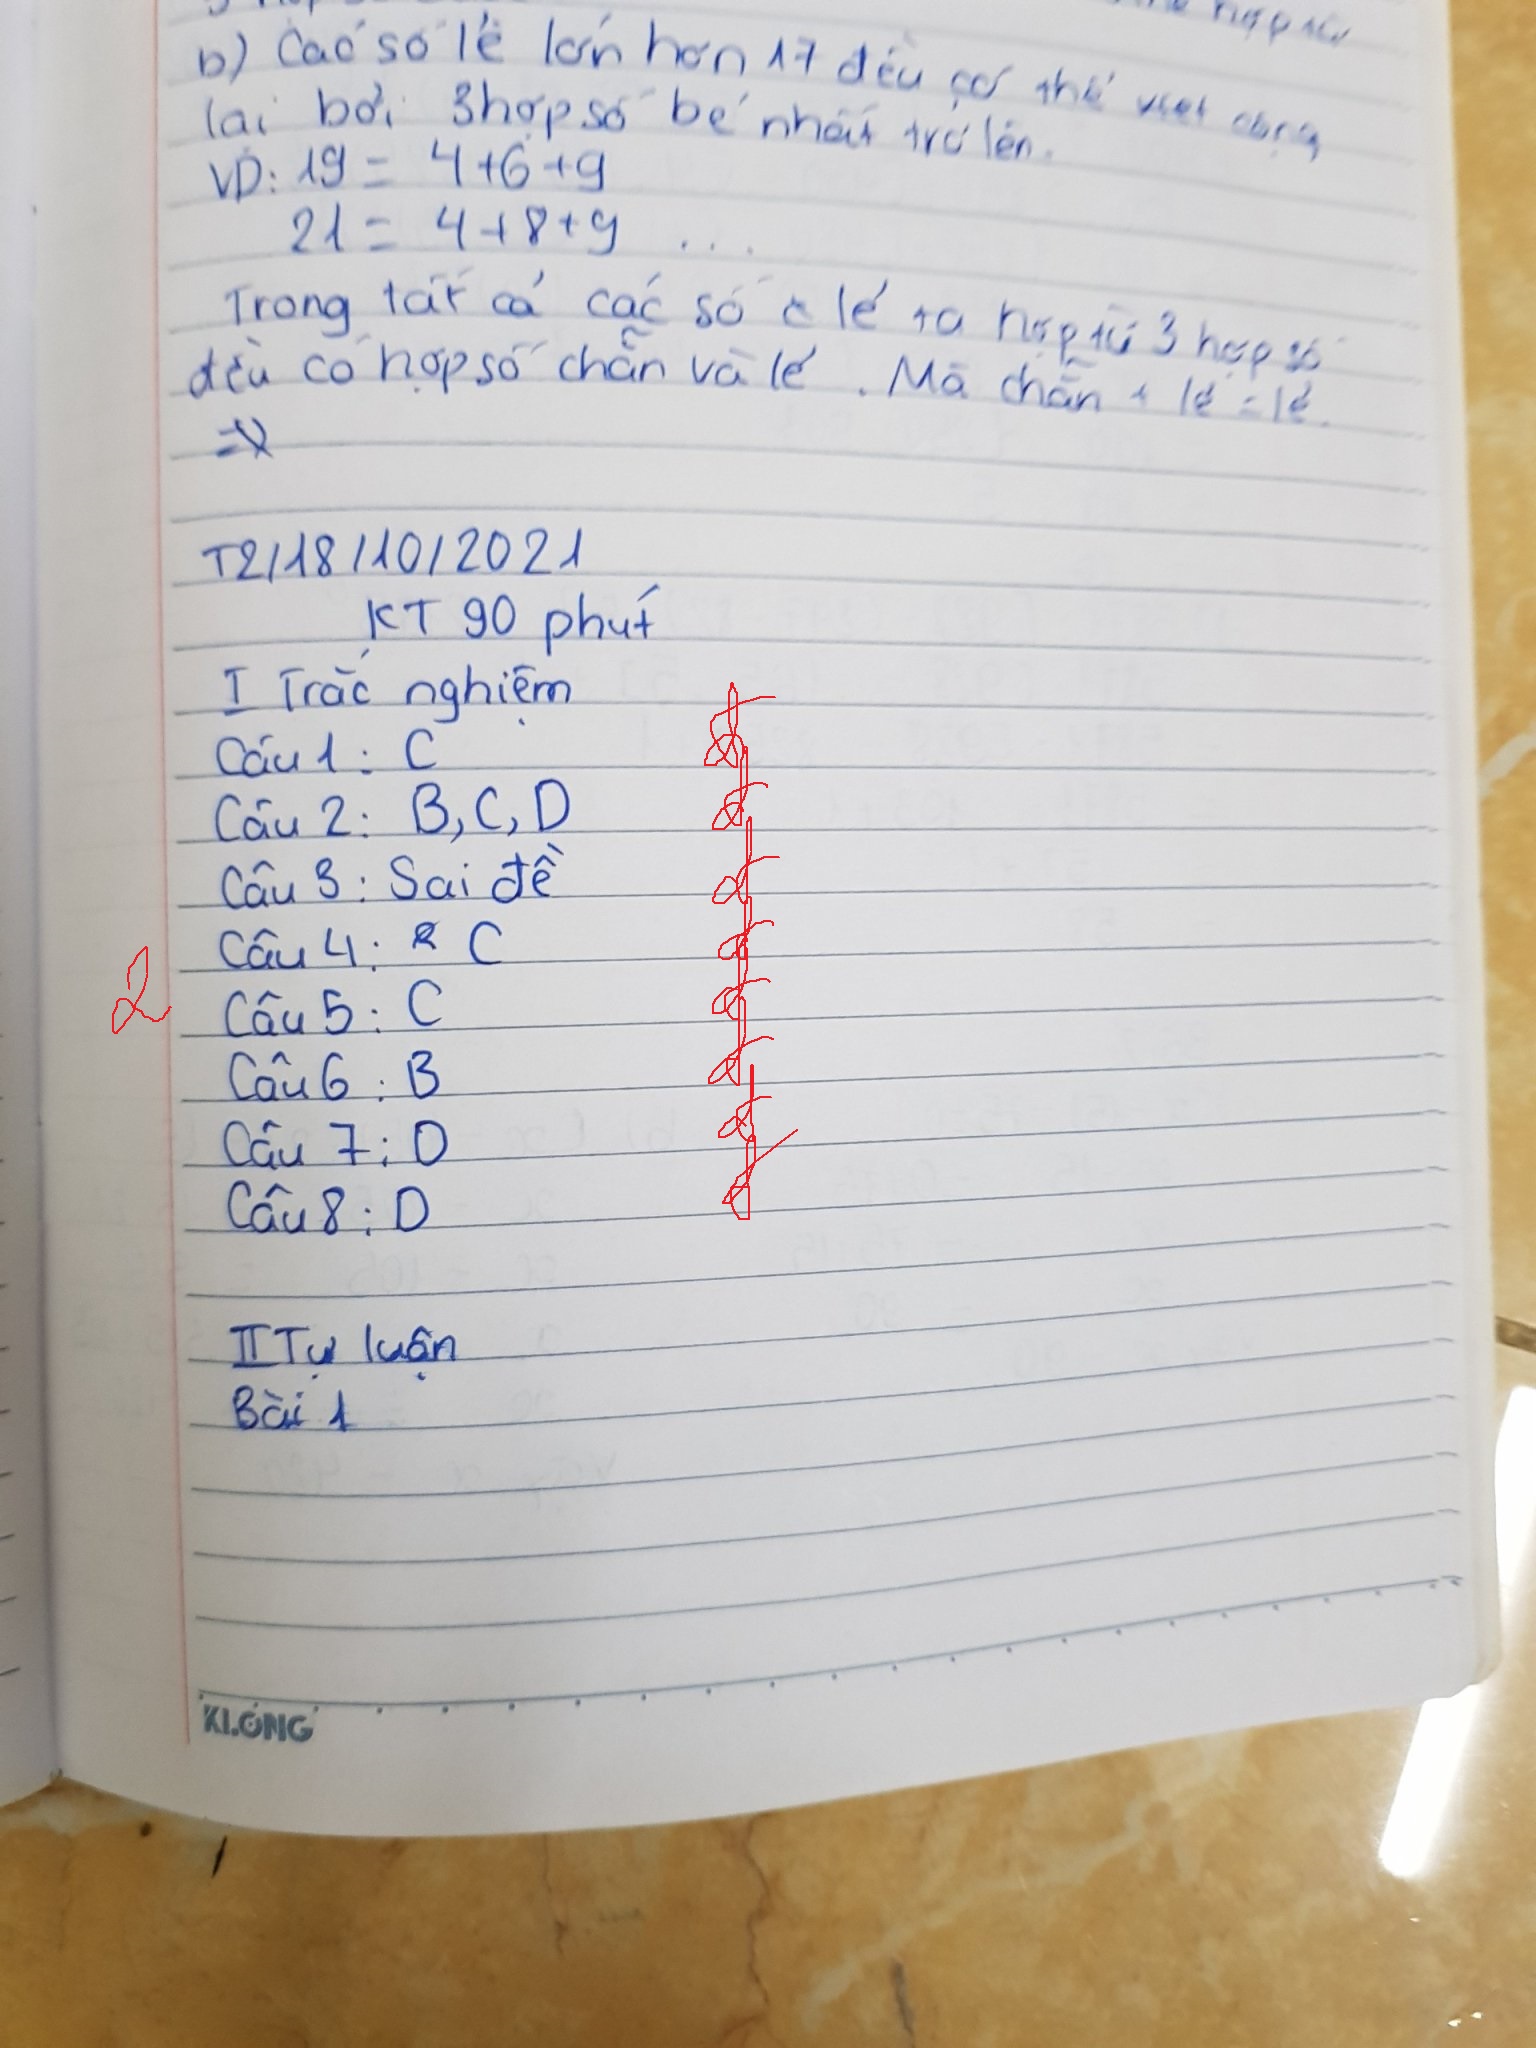 hợp số
b) Các số lẻ lớn hơn 17 đều có thể viết
lại bởi 3 hợp số bé nhất trở lên.
VD: 19 = 4+6+9
21 = 4+8+9 ...
Trong tất cả các số lẻ ta hợp từ 3 hợp số
đều có hợp số chẵn và lẻ. Mà chẵn + lẻ = lẻ.
=>
T2/18/10/2021
KT 90 phút
I Trắc nghiệm
Câu 1: C
đ
Câu 2: B, C, D
đ
Câu 3: Sai đề
đ
Câu 4: C
đ
2
Câu 5: C
đ
Câu 6: B
đ
Câu 7: D
đ
Câu 8: D
đ
II Tự luận
Bài 1
KLONG